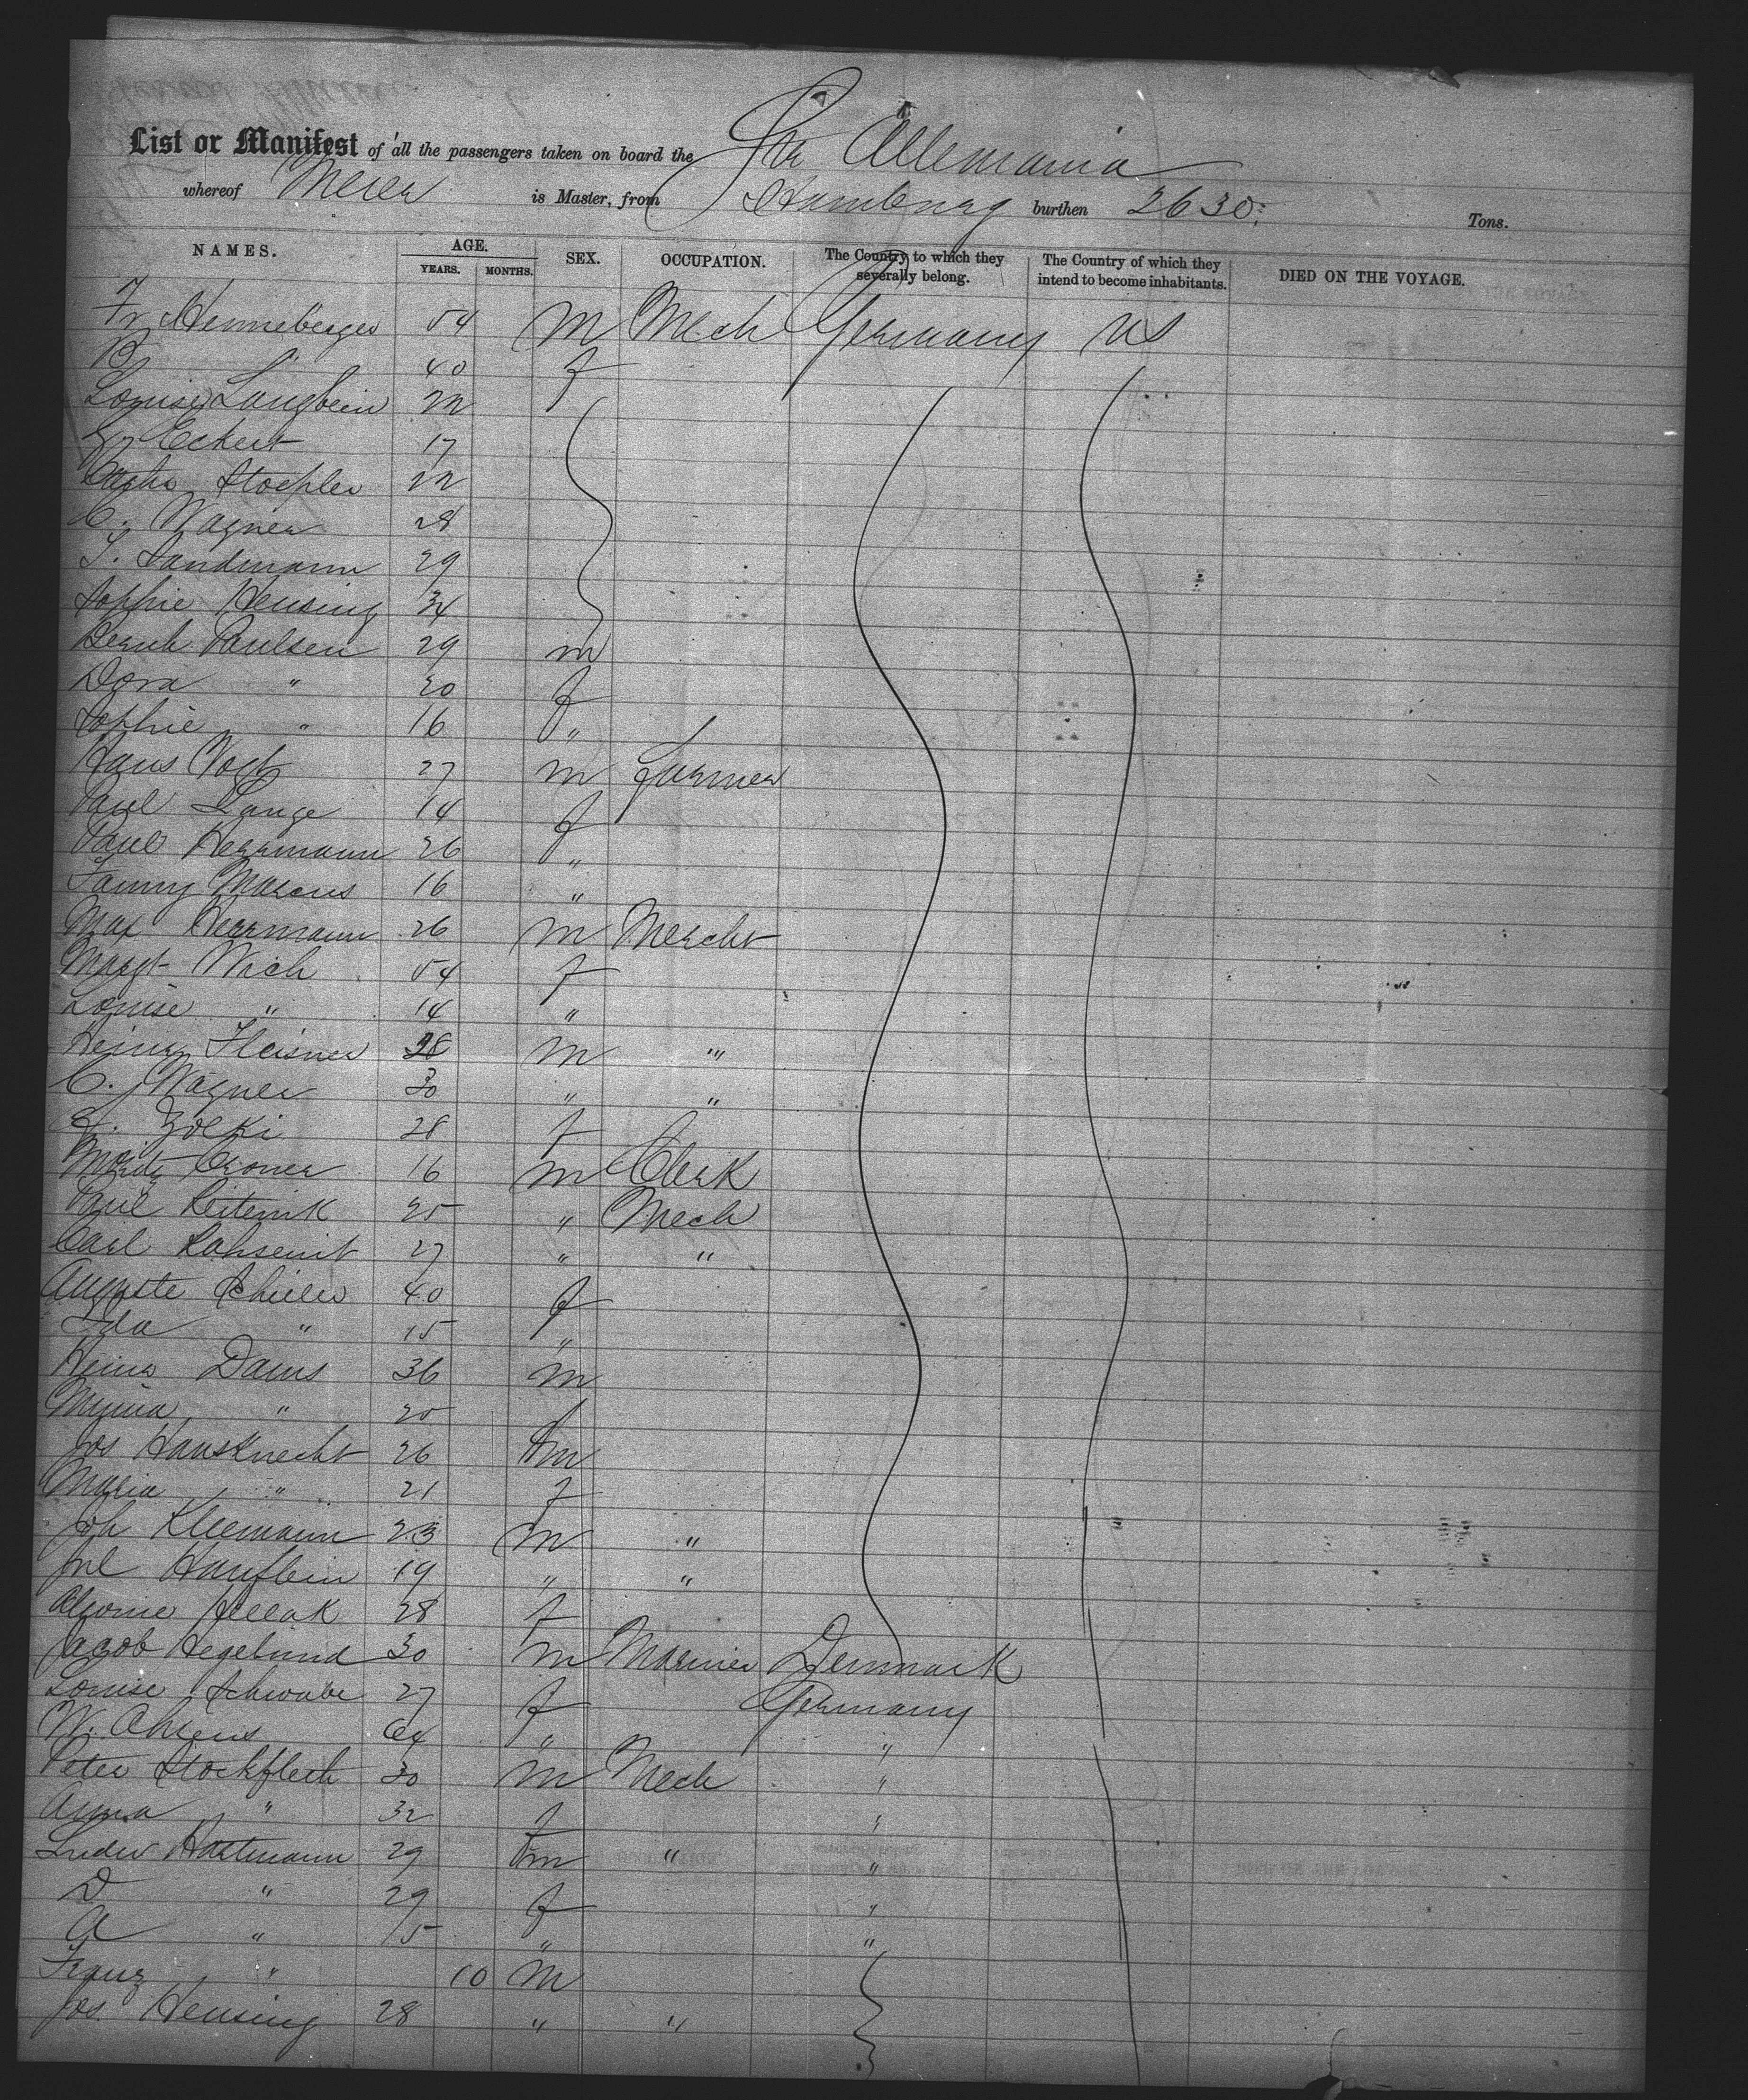 List or Manifest of all the passengers taken on board the Str Allemania
whereof Meier is Master, from Hamburg burthen 2630 Tons.
NAMES. AGE. YEARS. MONTHS. SEX. OCCUPATION. The Country to which they severally belong. The Country of which they intend to become inhabitants. DIED ON THE VOYAGE.
Fr Henneberger 54 m Mech Germany US
B " 40 f
Louise Langbein 22
Eckert 17
Stoepler 22
C. Wagner 28
Sandmann 29
Sophie Hensing 34
Bernh Paulsen 29 m
Dora " 20 f
Sophie " 16 "
Hans Vogt 27 m Farmer
Paul Lange 14 f
Paul Herrmann 26 "
Fanny Marcus 16 "
Max Herrmann 26 m Mercht
Margt Wich 54 f
Louise " 14 "
Heinr Fleisner 38 m "
C. Wagner 30 " "
28 f
Moritz Croner 16 m Clerk
Paul Leitenik 25 " Mech
Carl 27 " "
Auguste Schieler 40 f
Ida " 15 "
Heinr Dams 36 m
Minna " 25 f
Jos Hausknecht 26 m
Maria " 21 f
Joh Kleemann 23 m "
Jul Hanflein 19 " "
28 f
Jacob Hegelund 30 m Mariner Denmark
Louise Schwabe 27 f Germany
W. Ahrens 64 " "
Peter Stockfleth 30 m Mech "
Anna " 32 f "
Luder Hartmann 29 m " "
D " 29 f "
A " 15 " "
Franz " 10 m
Jos. Hensing 28 " "